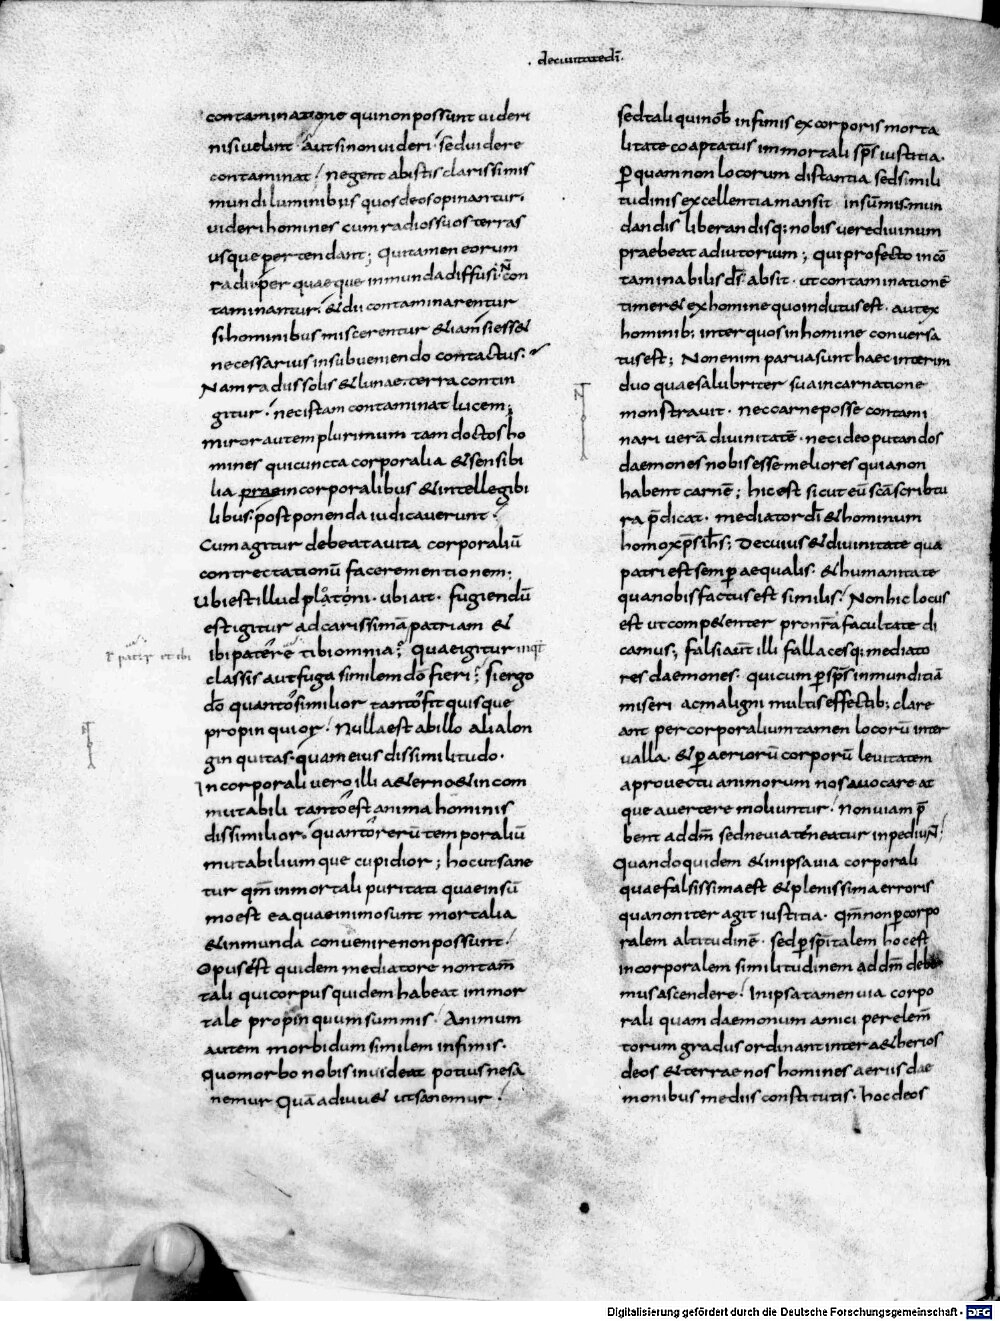 . deciuitatedī.
contaminatione quinon possunt uideri
nisi uelint · Aut sinon uideri · sed uidere
contaminat · negent abistis clarissimis
mundi luminibus quos deos opinantur ·
uideri homines cum radios suos terras
usque pertendant ; Qui tamen eorum
radii per quaeque inmunda diffusi · ncon
taminantur · & dii contaminarentur
si hominibus miscerentur & iam si ess&
necessarius insubueniendo contactus ·
Nam radiis solis & lunae · terra contin
gitur · nec istam contaminat lucem ;
miror autem plurimum tam doctos ho
mines qui cuncta corporalia & sensibi
lia prae incorporalibus & intellegibi
libus · postponenda iudicauerunt ·
Cum agitur debeata uita corporaliū
contrectationū facere mentionem ;
Ubi est illud platoni · ubi ait · fugiendū
est igitur adcarissimā patriam &
ł pater et ibi
ibi patere tibi omnia ; quae igitur inqt
classis aut fuga similem dō fieri · si ergo
dō quanto similior tanto fit quisque
propinquior · Nulla est abillo alia lon
ginquitas · quam eius dissimilitudo ·
Incorporali uero illi a&erno & incom
mutabili tanto est anima hominis
dissimilior · quanto rerū temporaliū
mutabiliumque cupidior ; hoc ut sane
tur qm̄ inmortali puritati quae insū
mo est ea quae inimo sunt mortalia
& inmunda conuenire non possunt ·
Opus est quidem mediatore non tam̄
tali qui corpus quidem habeat inmor
tale propinquum summis · Animum
autem morbidum similem infimis ·
Quo morbo nobis inuideat potius ne sa
nemur Quā adiuu& ut sanemur ·
sed tali qui nob infimis ex corporis morta
litate coaptatus inmortali sp̄s iustitia ·
p̱ quam non locorum distantia sed simili
tudinis excellentia mansit insūmis · mun
dandis liberandisq; nobis uere diuinum
praebeat adiutorium ; qui profecto incō
taminabilis dś · absit · ut contaminationē
timer& ex homine quo indutus est · aut ex
hominib; inter quos in homine conuersa
tus est ; Non enim parua sunt haec interim
duo quae salubriter sua incarnatione
monstrauit · nec carne posse contami
nari uerā diuinitatē · nec ideo putandos
daemones nobis esse meliores quia non
habent carnē ; hic est sicut eū scā scribtu
ra p̄dicat · mediator dī & hominum
homo xp̄s ih̄s ; De cuius & diuinitate qua
patri est semp̱ aequalis · & humanitate
qua nobis factus est similis · Non hic locus
est ut comp&enter pro nr̄a facultate di
camus ; falsi aūt illi fallacesq; mediato
res daemones · qui cum p̱ sp̄s inmunditiā
miseri ac maligni multis effectib; clare
ant per corporalium tamen locorū inter
ualla · & p̱ aeriorū corporū leuitatem
a prouectu animorum nos auocare at
que auertere moliuntur · Non uiam p̄
bent ad dm̄ sed ne uia teneatur inpediuN̄ ·
Quando quidem & in ipsa uia corporali
quae falsissima est & plenissima erroris
qua non iter agit iustitia · qm̄ non p̱ corpo
ralem altitudinē · sed p̱ sp̄italem hoc est
incorporalem similitudinem ad dm̄ debe
mus ascendere · In ipsa tamen uia corpo
rali quam daemonum amici per elem̄
torum gradus ordinant inter a&herios
deos & terrae nos homines aeriis dae
monibus mediis constitutis · hoc deos
Digitalisierung gefördert durch die Deutsche Forschungsgemeinschaft - DFG